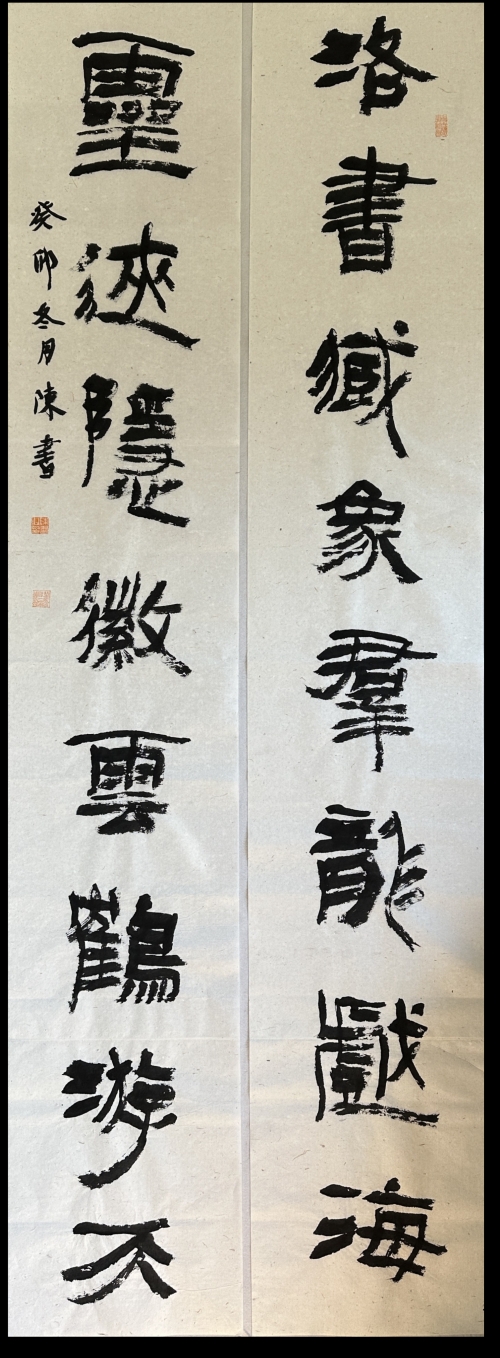 洛書臧象羣龍戲海
靈隱徽雲鶴游天
癸卯冬月陳書